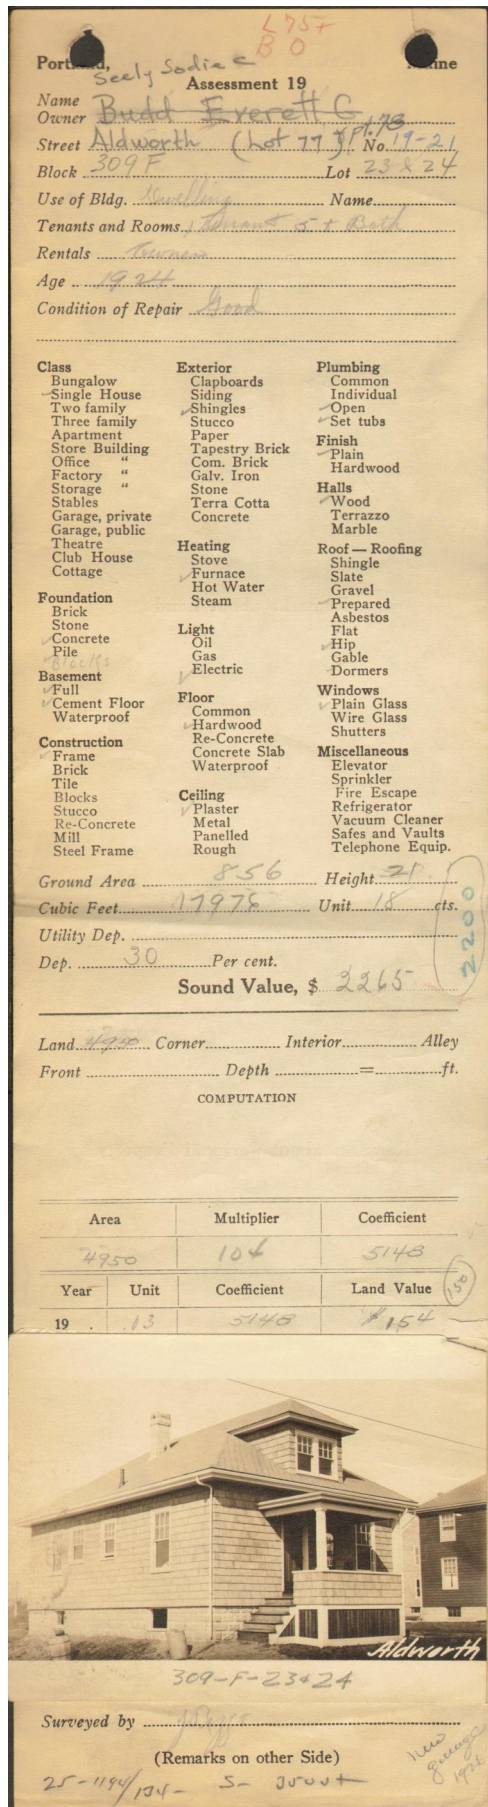 L 75+
B 0
Portland, Maine
Seely Sadie C
Assessment 19
Name
Owner Budd Everett G
Street Aldworth (Lot 77) & pt. 78 No. 19-21
Block 309 F Lot 23 & 24
Use of Bldg. Dwelling Name
Tenants and Rooms 1 Tenant 5 + Bath
Rentals Owner
Age 1924
Condition of Repair Good
Class
Bungalow
Single House
Two family
Three family
Apartment
Store Building
Office "
Factory "
Storage "
Stables
Garage, private
Garage, public
Theatre
Club House
Cottage
Foundation
Brick
Stone
Concrete
Pile
Blocks
Basement
Full
Cement Floor
Waterproof
Construction
Frame
Brick
Tile
Blocks
Stucco
Re-Concrete
Mill
Steel Frame
Exterior
Clapboards
Siding
Shingles
Stucco
Paper
Tapestry Brick
Com. Brick
Galv. Iron
Stone
Terra Cotta
Concrete
Heating
Stove
Furnace
Hot Water
Steam
Light
Oil
Gas
Electric
Floor
Common
Hardwood
Re-Concrete
Concrete Slab
Waterproof
Ceiling
Plaster
Metal
Panelled
Rough
Plumbing
Common
Individual
Open
Set tubs
Finish
Plain
Hardwood
Halls
Wood
Terrazzo
Marble
Roof — Roofing
Shingle
Slate
Gravel
Prepared
Asbestos
Flat
Hip
Gable
Dormers
Windows
Plain Glass
Wire Glass
Shutters
Miscellaneous
Elevator
Sprinkler
Fire Escape
Refrigerator
Vacuum Cleaner
Safes and Vaults
Telephone Equip.
Ground Area 856 Height 21
Cubic Feet 17976 Unit 18 cts.
2200
Utility Dep.
Dep. 30 Per cent.
Sound Value, $ 2265
Land 4950 Corner Interior Alley
Front Depth = ft.
COMPUTATION
Area Multiplier Coefficient
4950 104 5148
Year Unit Coefficient Land Value 150
19 .03 5148 $154
Aldworth
309-F-23+24
Surveyed by
(Remarks on other Side)
new
garage
25-1194/134- S- 3500+